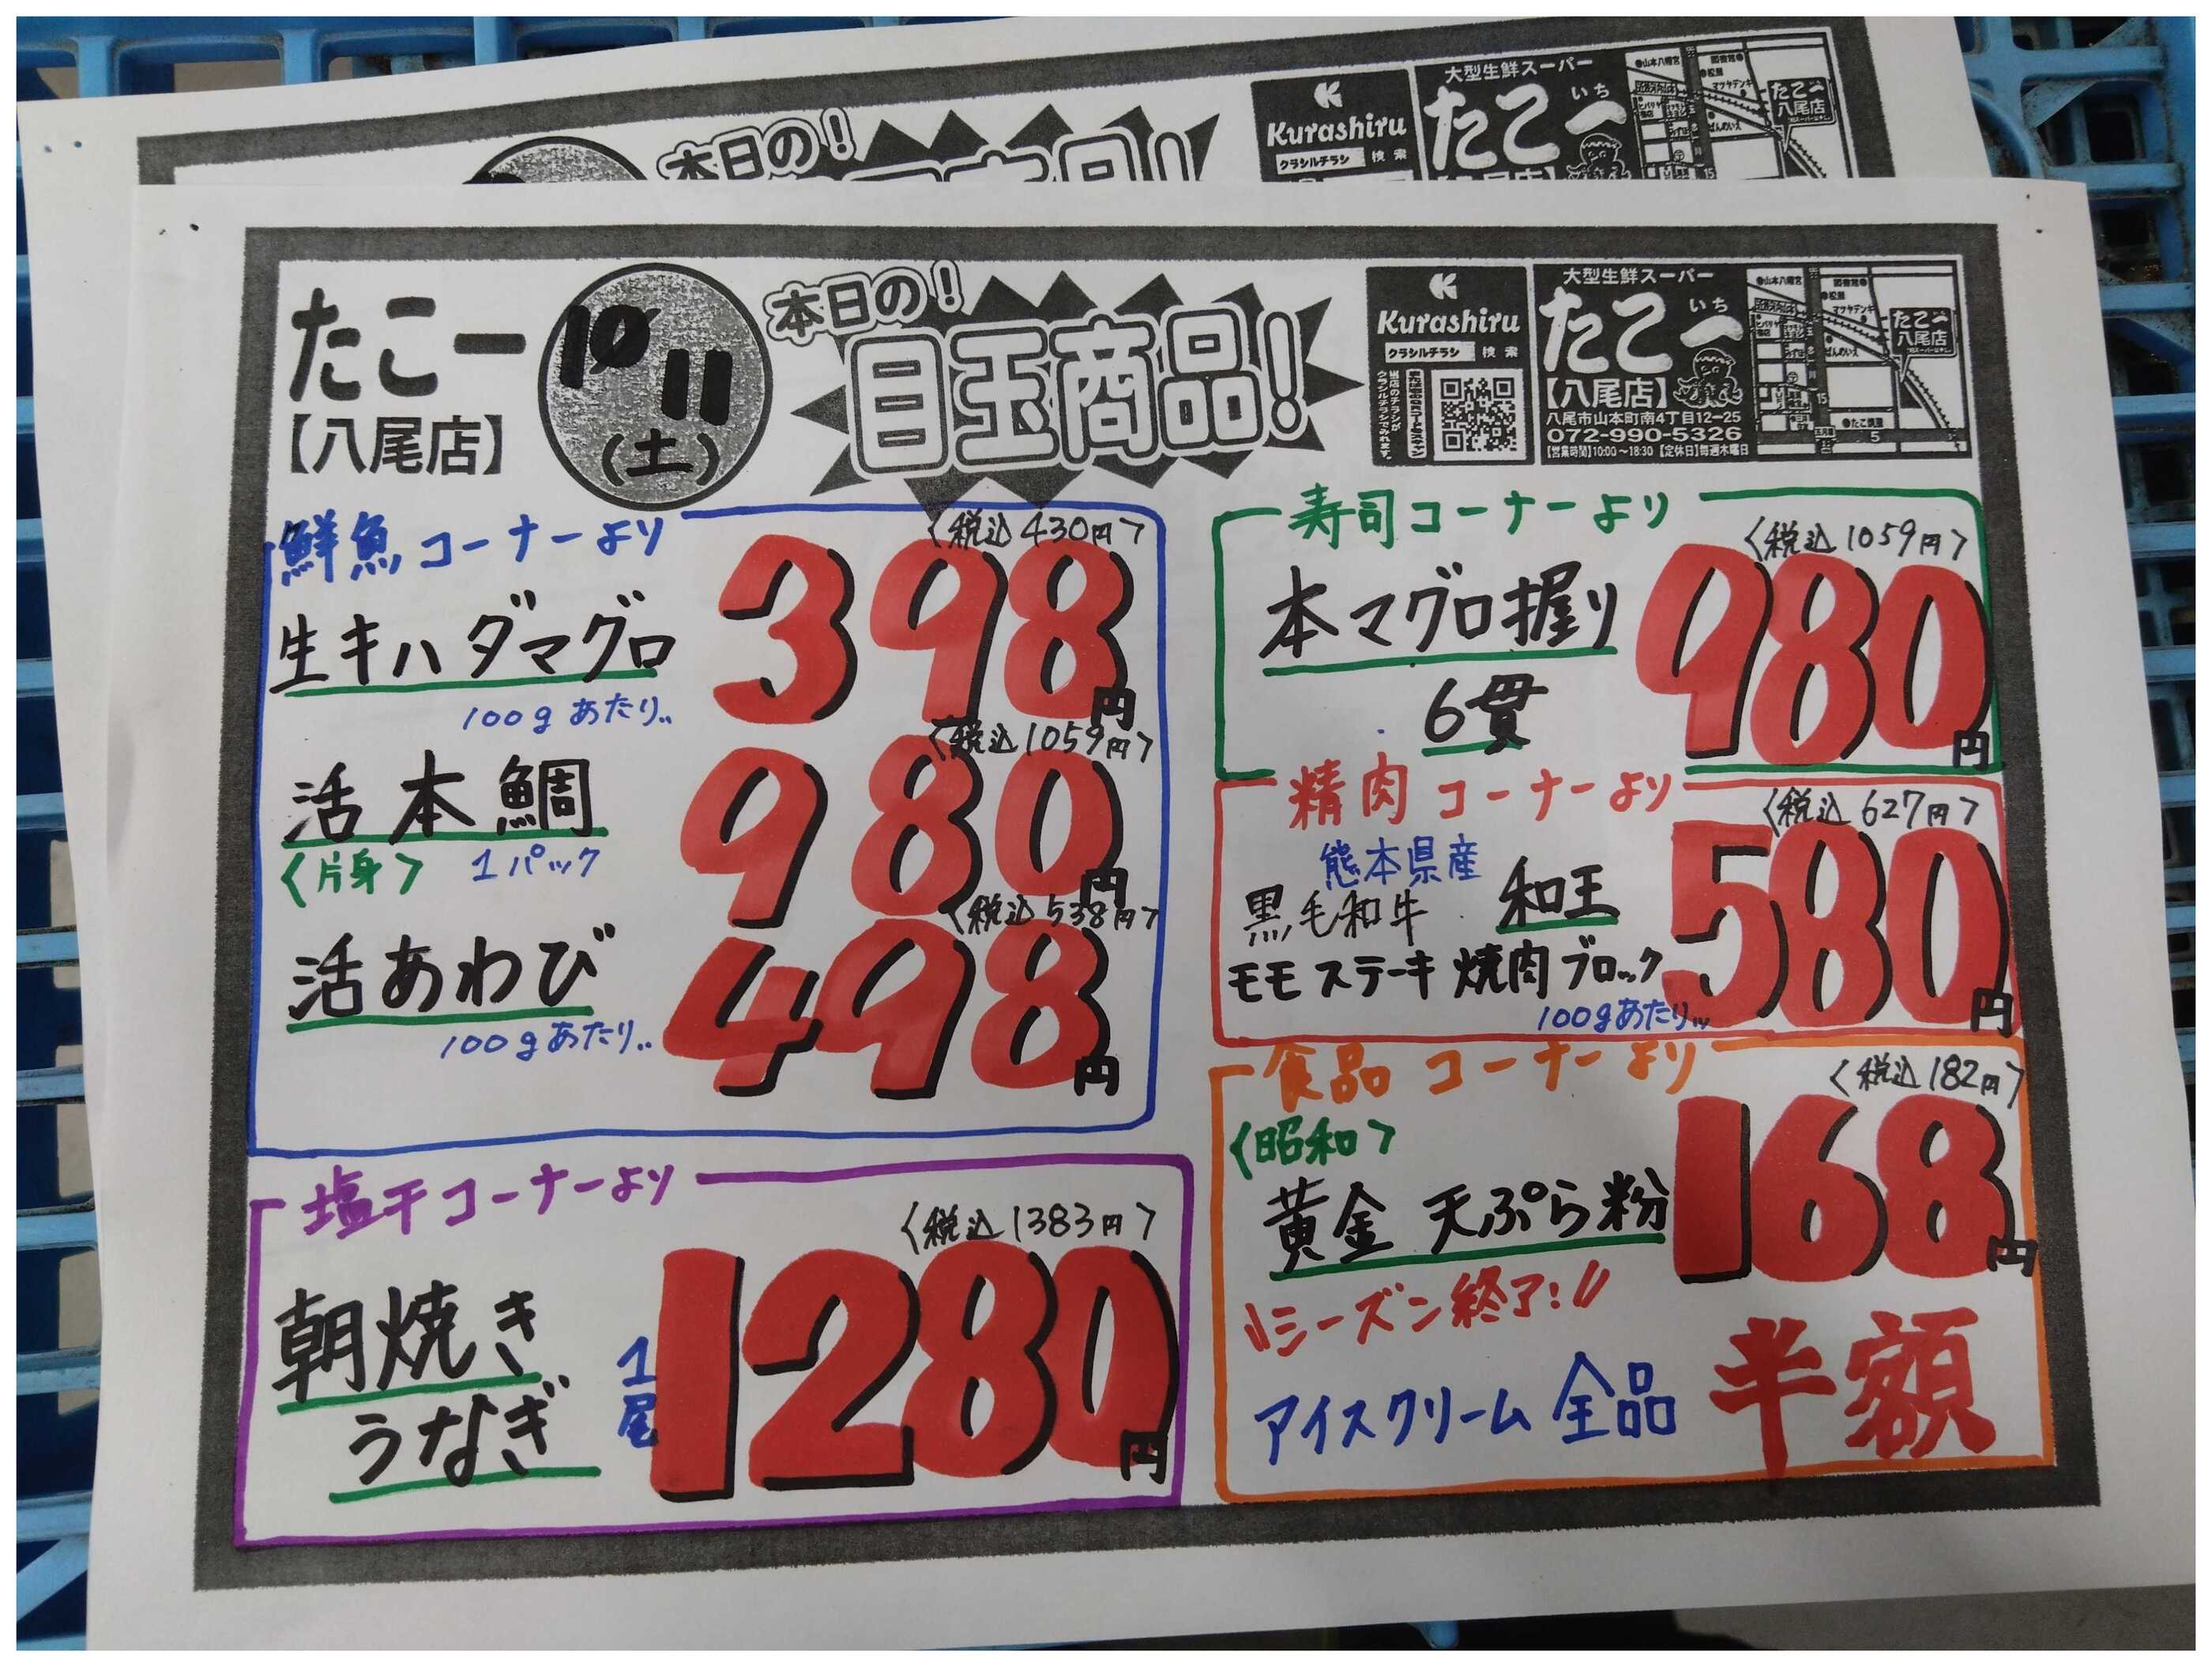 本日の!
Kurashiru
クラシルチラシ 検索
大型生鮮スーパー
たこ一
いち
たこ一
八尾店
たこ一
【八尾店】
10/11
(土)
本日の!
目玉商品!
Kurashiru
クラシルチラシ 検索
大型生鮮スーパー
たこ一
いち
【八尾店】
八尾市山本町南4丁目12-25
072-990-5326
【営業時間】10:00〜18:30【定休日】毎週木曜日
山本八幡宮
松屋
マツヤデンキ
たこ一
八尾店
ぜんのいえ
鮮魚コーナーより
〈税込430円〉
生キハダマグロ
398円
100gあたり..
〈税込1059円〉
活本鯛
980円
〈片身〉 1パック
〈税込538円〉
活あわび
498円
100gあたり..
塩干コーナーより
〈税込1383円〉
朝焼き
うなぎ
1尾
1280円
寿司コーナーより
〈税込1059円〉
本マグロ握り
6貫
980円
精肉コーナーより
〈税込627円〉
熊本県産
黒毛和牛 和王
モモステーキ 焼肉 ブロック
580円
100gあたり...
食品コーナーより
〈税込182円〉
〈昭和〉
黄金 天ぷら粉
168円
\\シーズン終了!//
アイスクリーム 全品 半額